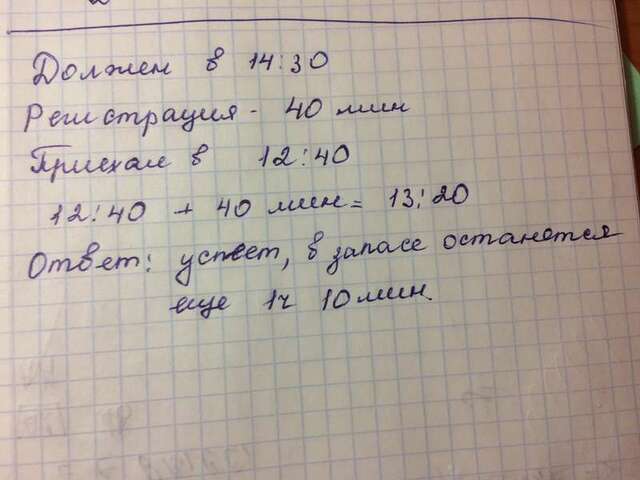 Должен в 14:30
Регистрация - 40 мин
Приехал в 12:40
12:40 + 40 мин = 13:20
Ответ: успеет, в запасе останется
еще 1ч 10мин.